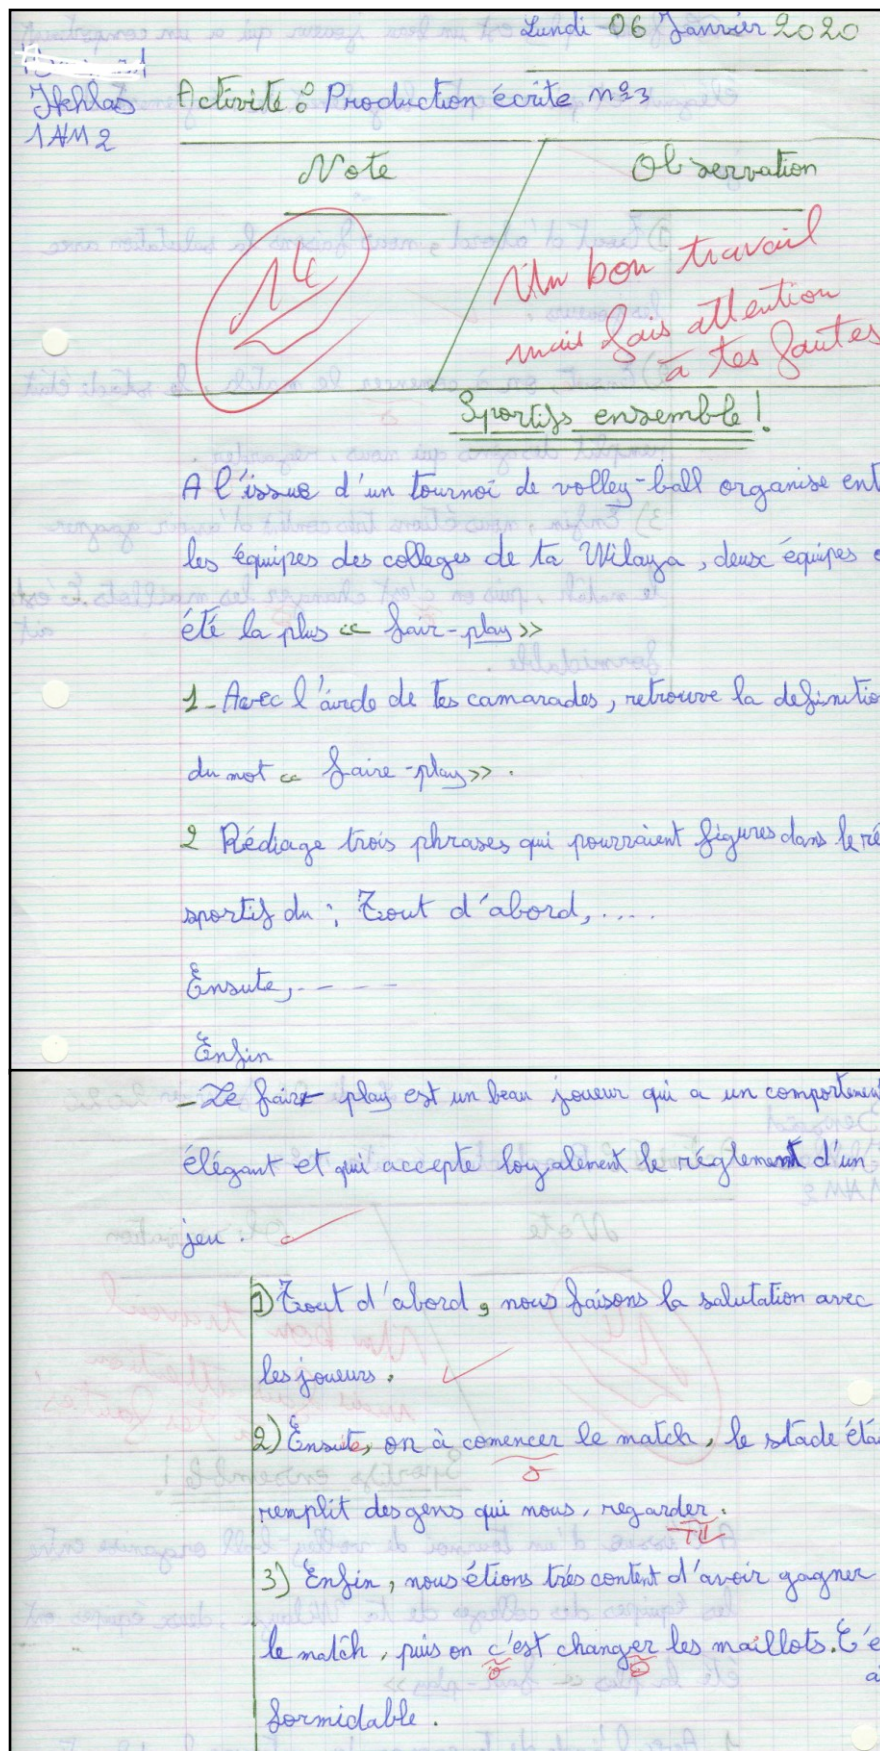 Lundi 06 Janvier 2020
Ikhlas
1AM2
Activité : Production écrite n°3
Note
Observation
14
Un bon travail
mais fais attention
à tes fautes
Sportifs ensemble !
A l'issue d'un tournoi de volley-ball organise ent
les équipes des colleges de ta Wilaya, deux équipes o
été la plus << fair-play >>
1- Avec l'aide de tes camarades, retrouve la definitio
du mot << faire-play >> .
2 Rédiage trois phrases qui pourraient figures dans le ré
sportif du : Tout d'abord, ....
Ensute, - - - -
Enfin
- Le fair play est un beau joueur qui a un comportement
élégant et qui accepte loyalement le réglement d'un
jeu .
1) Tout d'abord, nous faisons la salutation avec
les joueurs .
2) Ensuite, on à comencer le match, le stade éta
remplit des gens qui nous, regarder .
3) Enfin, nous étions très content d'avoir gagner
le match, puis on c'est changer les maillots. C'é
a
formidable .